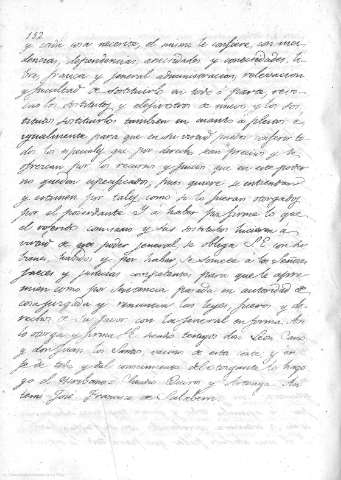 132
y cada cosa necesario, el mismo le confiere, con inci-
dencias, dependencias, anexidades y conexidades, li-
bre, franca y general administracion, relevacion
y facultad de sostituirlo en todo ó parte, revo-
car los sostitutos, y elejir otros de nuevo, y los sos-
titutos sostituirlos tambien en cuanto á pleitos e
igualmente para que en su virtud pueda
dos los especiales que por derecho sean precisos y se
ofrezcan por los recursos y juicios que en este poder
no quedan especificados, pues quiere se entiendan
y estimen por tales como si lo fueran otorgados
por el poderdante. Y á haber por firme lo que
el referido comisario y sus sostitutos hicieren á
virtud de este poder jeneral se obliga S.E. con sus
bienes, habidos y por haber, se somete á los Señores
Jueces y justicias competentes para que le apre-
mien como por sentencia pasada en autoridad de
cosa juzgada y renuncia las leyes, fueros y de-
rechos de su favor con la jeneral en forma. Así
lo otorga y firma S.E. siendo testigos don Leon Cano
y don Juan los Santos vecinos de esta casa, y en
fe de todo y del conocimiento del otorgante lo hago
yo el Escribano = Claudio Quiro y Arteaga = An-
temi José Francisco de Salabern